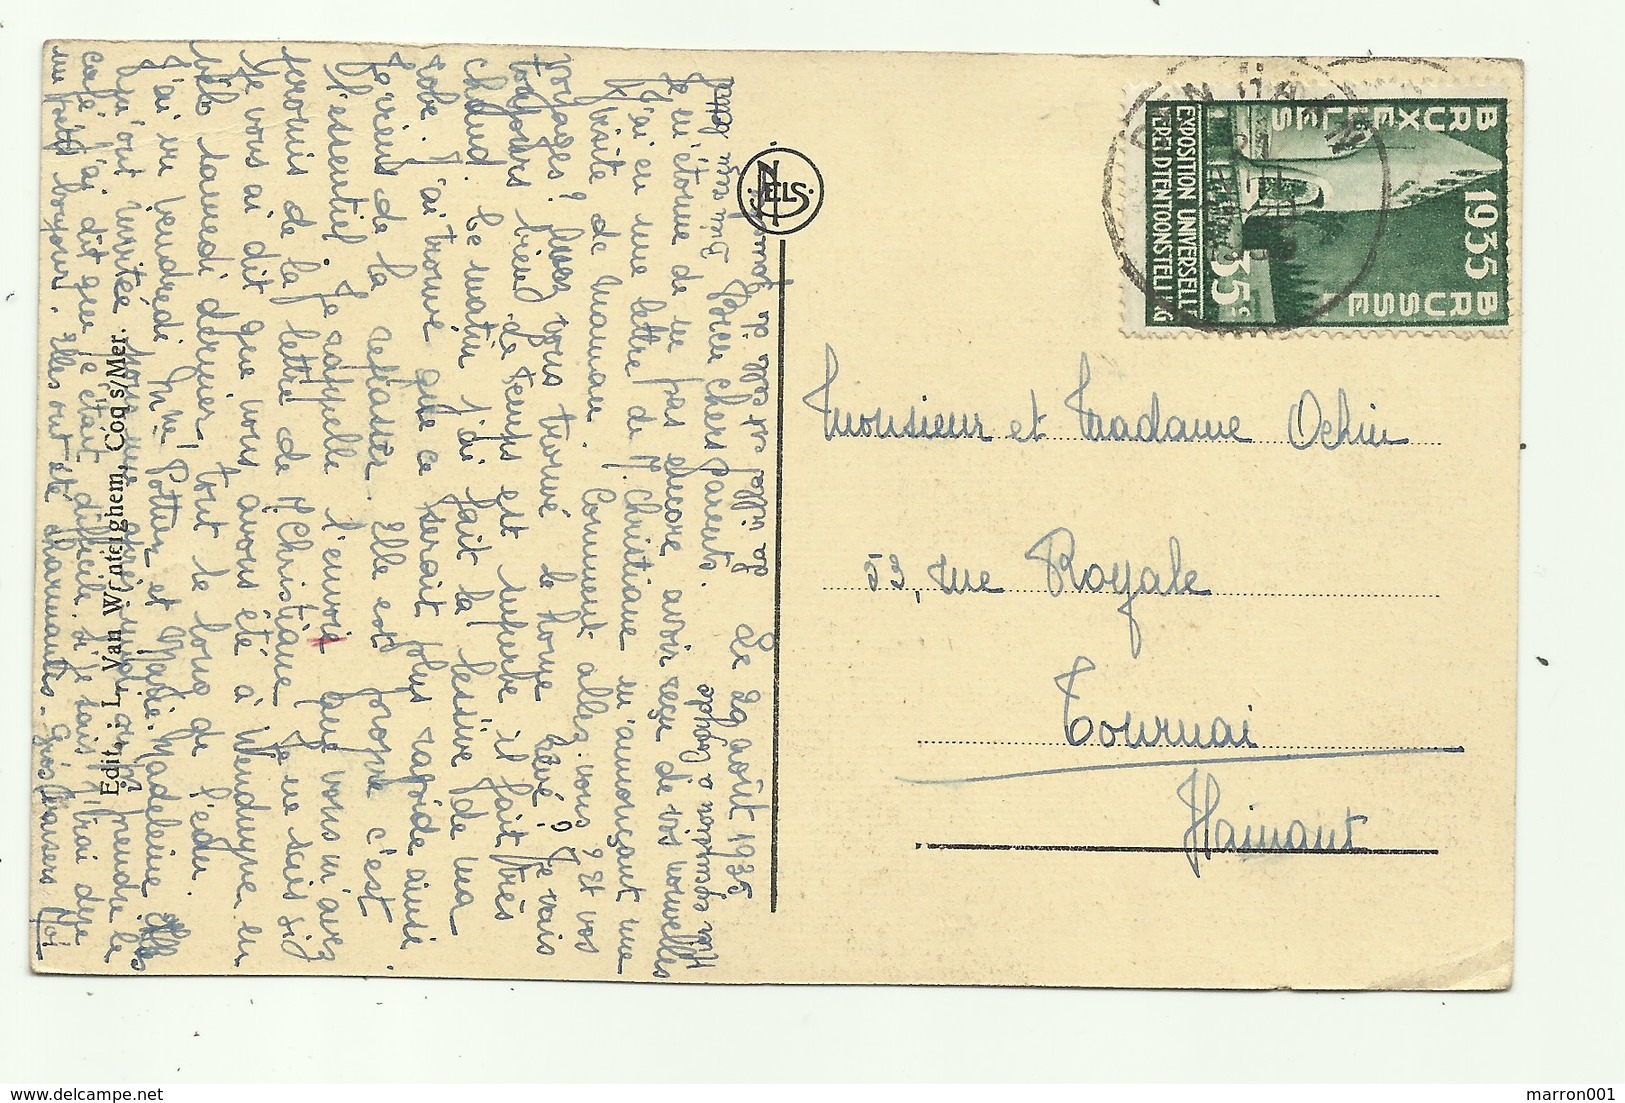 La ville est-elle de jour
Le 29 août 1935
Bien chers parents.
Hier excursion à Coxyde
Je m'étonne de ne pas encore avoir reçu de vos nouvelles
J'ai eu une lettre de M. Christiane m'annonçant une
visite de maman. Comment allez-vous? Et vos
voyages? Avez-vous trouvé le home rêvé? Je vais
toujours bien. Le temps est superbe il fait très
chaud. Ce matin j'ai fait la lessive de ma
robe. J'ai trouvé que ce serait plus rapide ainsi
Je viens de la repasser. Elle est propre c'est
l'essentiel. Je rappelle l'envoie que vous m'avez
promis de la lettre de M. Christiane. Je ne sais si
je vous ai dit que nous avons été à Wenduyne en
vélo samedi dernier, tout le long de l'eau.
J'ai vu vendredi Mme Pottier et Marie-Madeleine. Elles
m'ont invitée pour aller prendre le
café. J'ai dit que je était difficile, si je sais j'irai dire
un petit bonjour. Elles ont été charmantes. Gros baisers. Moi
NELS
Edit. : L. Van Winterghem, Coq s/Mer.
BRUXELLES 1935 BRUSSEL
EXPOSITION UNIVERSELLE
WERELDTENTOONSTELLING
35c
DE HAAN
Monsieur et Madame Ochin
53, rue Royale
Tournai
Hainaut
marron001